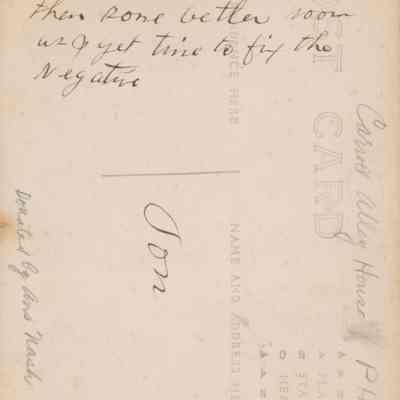 then some better soon
as I get time to fix the
Negative
Ton
Donated by Mrs Nash
Carroll Alley House
POST CARD
NAME AND ADDRESS HERE